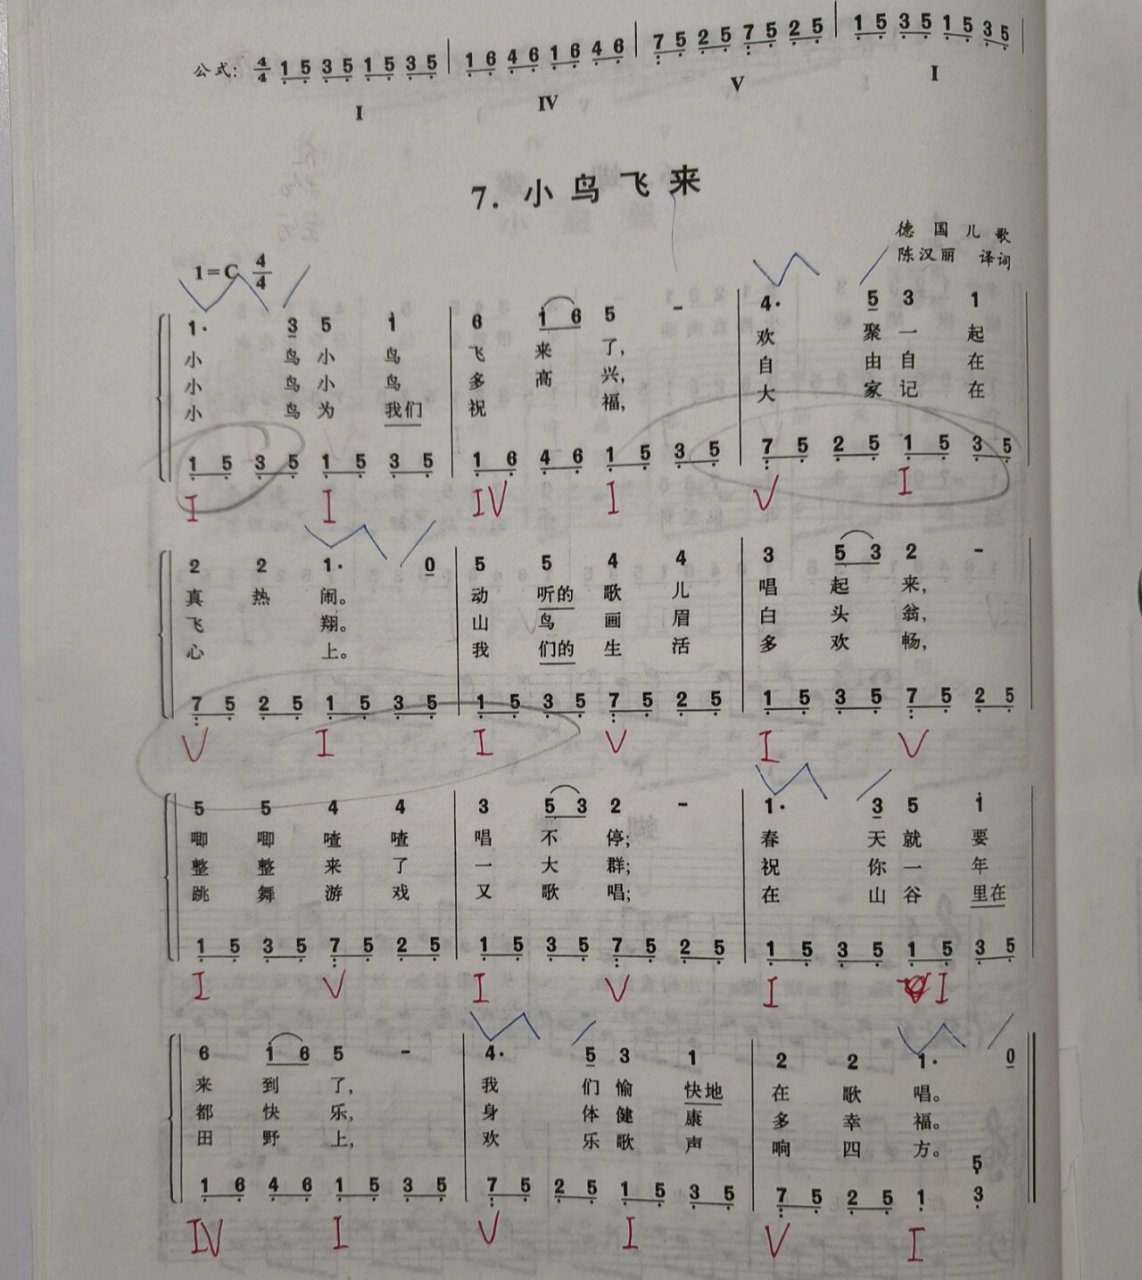 公式: 4/4 1 5 3 5 1 5 3 5 | 1 6 4 6 1 6 4 6 | 7 5 2 5 7 5 2 5 | 1 5 3 5 1 5 3 5
I IV V I
7. 小鸟飞来
德国儿歌
陈汉丽 译词
1=C 4/4
1· 3 5 i | 6 i 6 5 - | 4· 5 3 1
小 鸟 小 鸟 飞 来 了, 欢 聚 一 起
小 鸟 小 鸟 多 高 兴, 自 由 自 在
小 鸟 为 我们 祝 福, 大 家 记 在
1 5 3 5 1 5 3 5 | 1 6 4 6 1 5 3 5 | 7 5 2 5 1 5 3 5
I I IV I V I
2 2 1· 0 | 5 5 4 4 | 3 5 3 2 -
真 热 闹。 动 听的 歌 儿 唱 起 来,
飞 翔。 山 鸟 画 眉 白 头 翁,
心 上。 我 们的 生 活 多 欢 畅,
7 5 2 5 1 5 3 5 | 1 5 3 5 7 5 2 5 | 1 5 3 5 7 5 2 5
V I I V I V
5 5 4 4 | 3 5 3 2 - | 1· 3 5 i
唧 唧 喳 喳 唱 不 停; 春 天 就 要
整 整 来 了 一 大 群; 祝 你 一 年
跳 舞 游 戏 又 歌 唱; 在 山 谷 里在
1 5 3 5 7 5 2 5 | 1 5 3 5 7 5 2 5 | 1 5 3 5 1 5 3 5
I V I V I I
6 i 6 5 - | 4· 5 3 1 | 2 2 1· 0
来 到 了, 我 们 愉 快地 在 歌 唱。
都 快 乐, 身 体 健 康 多 幸 福。
田 野 上, 欢 乐 歌 声 响 四 方。
1 6 4 6 1 5 3 5 | 7 5 2 5 1 5 3 5 | 7 5 2 5 1 5 3
IV I V I V I